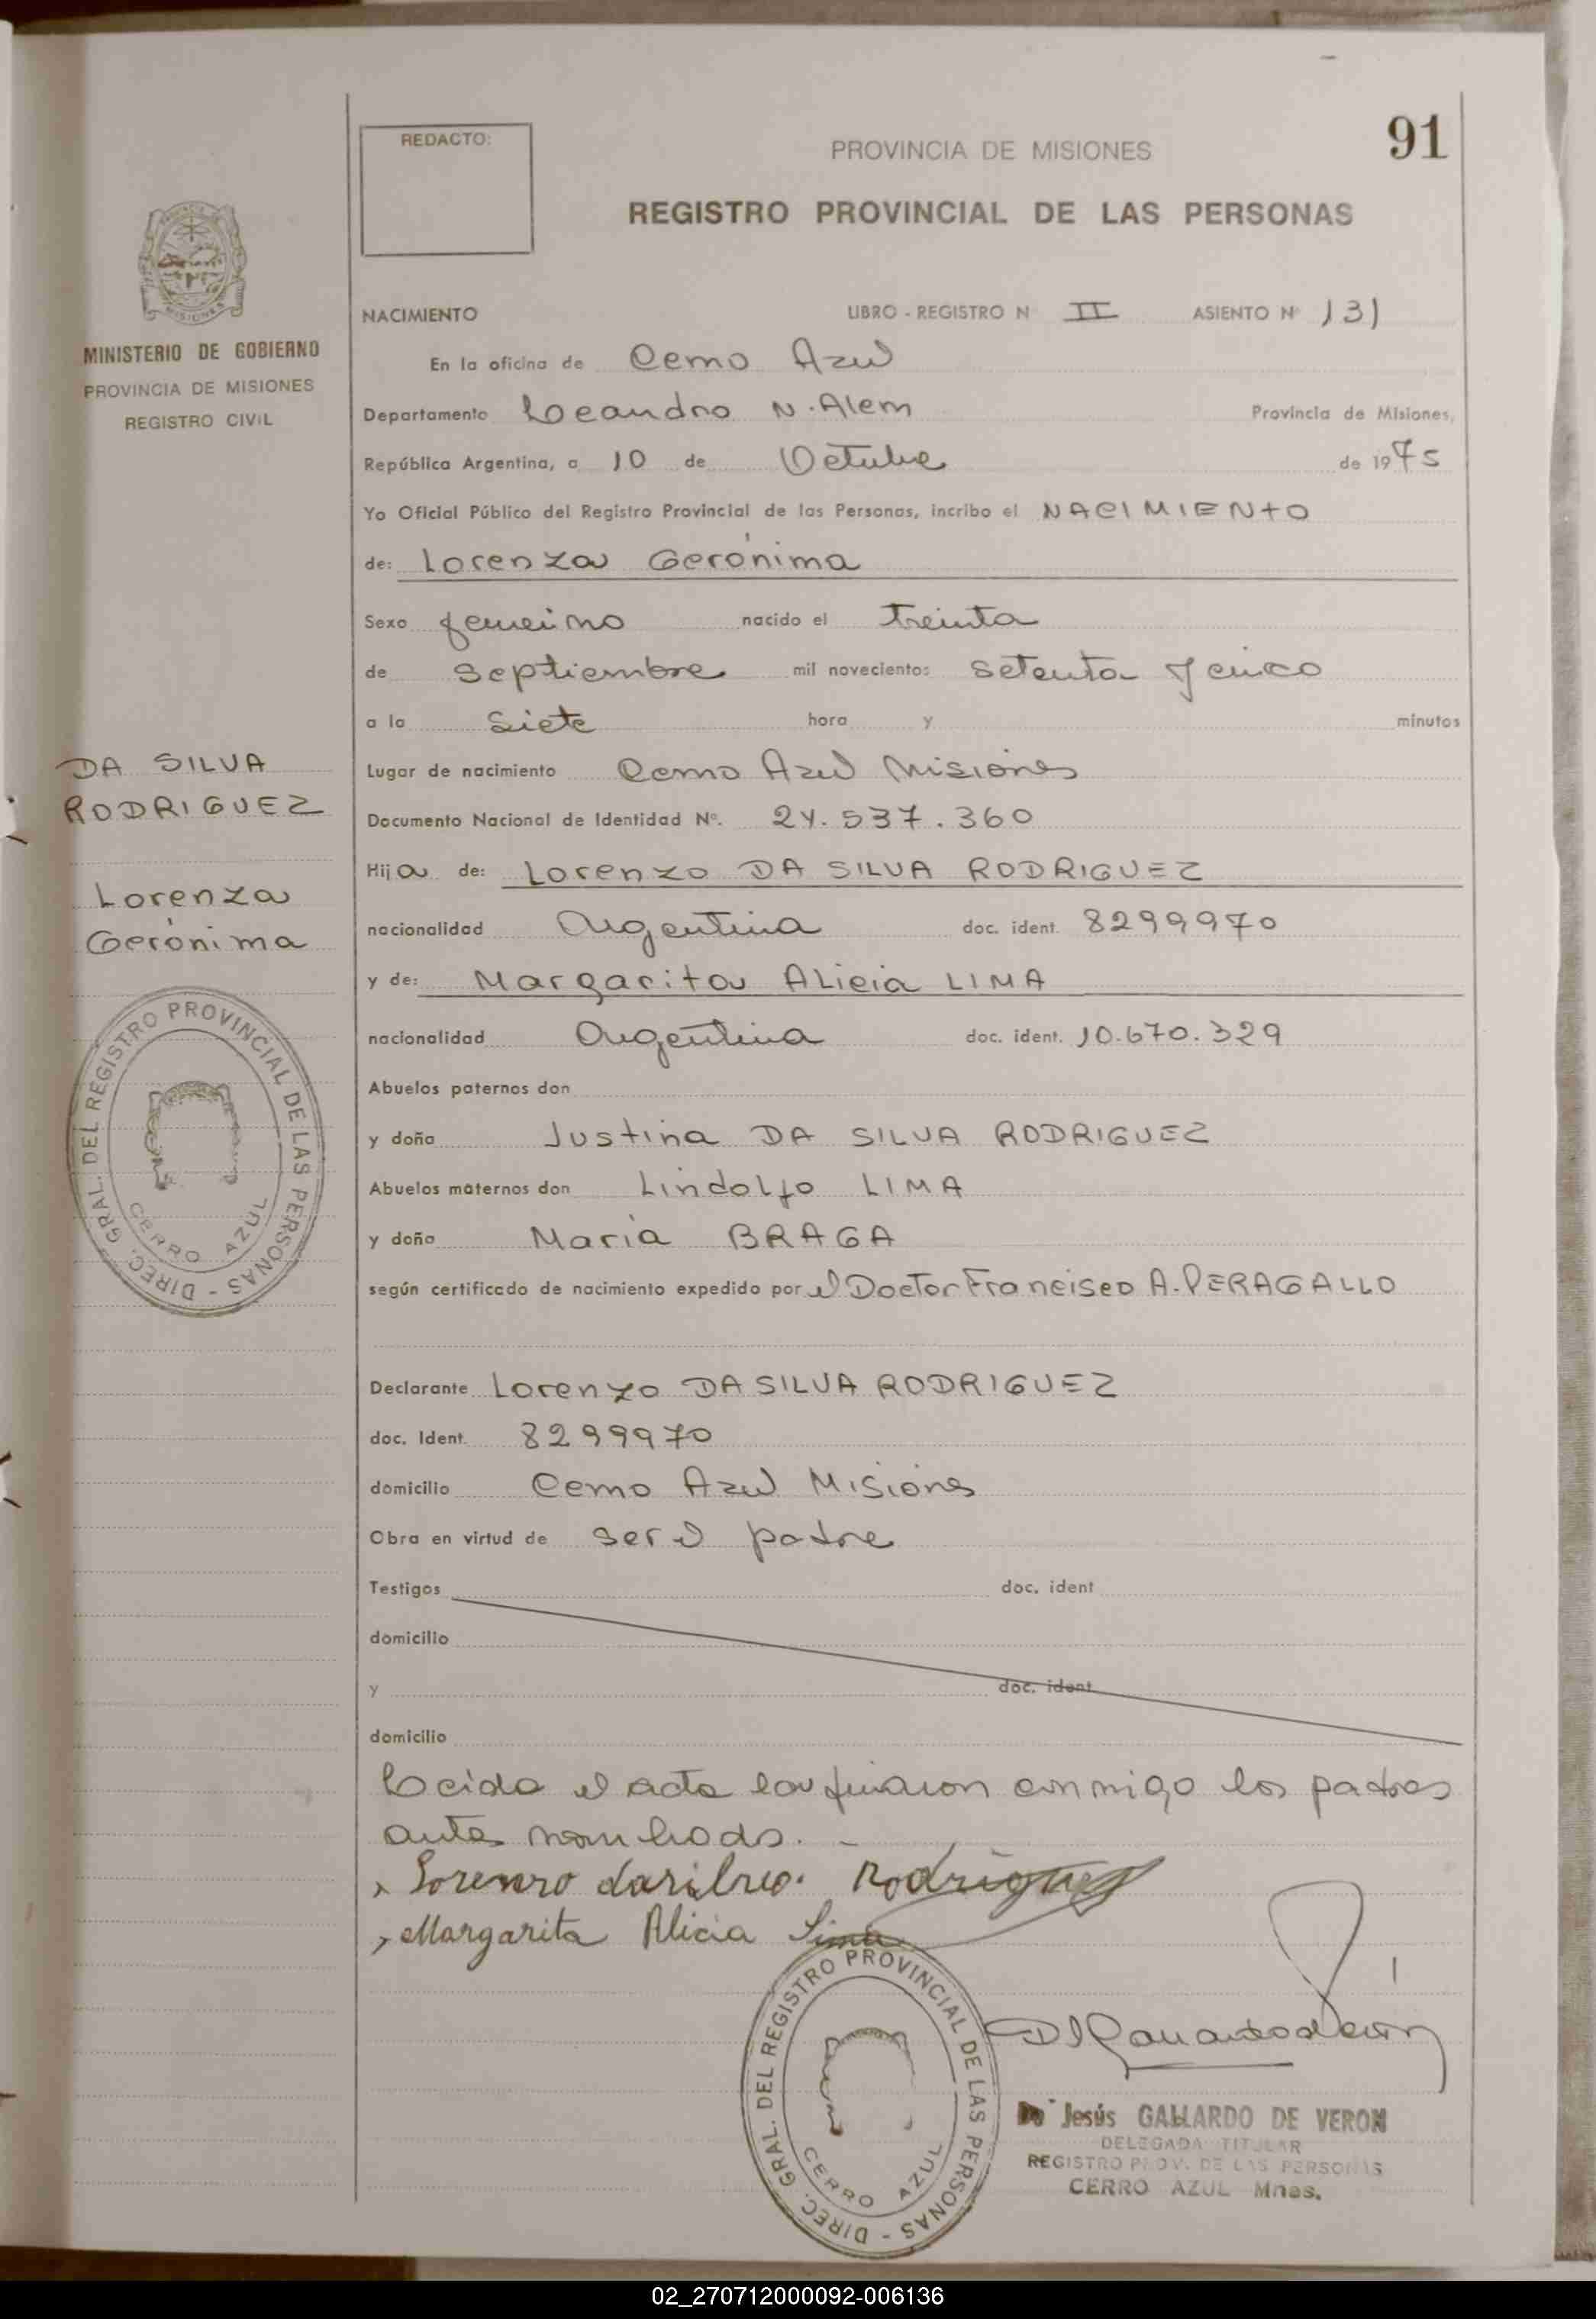 91
REDACTO:
PROVINCIA DE MISIONES
REGISTRO PROVINCIAL DE LAS PERSONAS
MISIONES
MINISTERIO DE GOBIERNO
PROVINCIA DE MISIONES
REGISTRO CIVIL
NACIMIENTO LIBRO - REGISTRO N II ASIENTO Nº 131
En la oficina de Cerro Azul
Departamento Leandro N. Alem Provincia de Misiones,
República Argentina, a 10 de Octubre de 1975
Yo Oficial Público del Registro Provincial de las Personas, incribo el NACIMIENTO
de: Lorenza Gerónima
Sexo femenino nacido el treinta
de Septiembre mil novecientos setenta y cinco
a la Siete hora y minutos
Lugar de nacimiento Cerro Azul Misiones
Documento Nacional de Identidad Nº. 24.537.360
Hija de: Lorenzo DA SILVA RODRIGUEZ
nacionalidad Argentina doc. ident. 8299970
y de: Margarita Alicia LIMA
nacionalidad Argentina doc. ident. 10.670.329
Abuelos paternos don
y doña Justina DA SILVA RODRIGUEZ
Abuelos maternos don Lindolfo LIMA
y doña María BRAGA
según certificado de nacimiento expedido por el Doctor Francisco A. PERAGALLO
Declarante Lorenzo DA SILVA RODRIGUEZ
doc. Ident. 8299970
domicilio Cerro Azul Misiones
Obra en virtud de ser el padre
Testigos doc. ident
domicilio
y doc. ident
domicilio
Leida el acta la firmaron conmigo los padres
antes nombrados. -
Lorenzo dasilva Rodriguez
Margarita Alicia Lima
DA SILVA
RODRIGUEZ
Lorenza
Gerónima
DIREC. GRAL. DEL REGISTRO PROVINCIAL DE LAS PERSONAS -
CERRO AZUL
DIREC. GRAL. DEL REGISTRO PROVINCIAL DE LAS PERSONAS -
CERRO AZUL
Jesús GALLARDO DE VERON
DELEGADA TITULAR
REGISTRO PROV. DE LAS PERSONAS
CERRO AZUL Mnes.
02_270712000092-006136